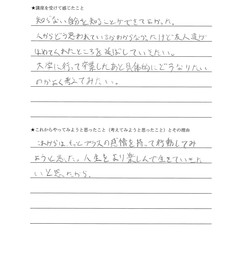 ★講座を受けて感じたこと
知らない自分を知ることができてよかった。
人からどう思われているかわからなかったけど友人達が
ほめてくれたところを伸ばしていきたい。
大学に行って卒業したあと具体的にどうなりたい
のかよく考えてみたい。
★これからやってみようと思ったこと（考えてみようと思ったこと）とその理由
これからは、もっとプラスの感情を持って行動してみ
ようと思った。人生をより楽しんで生きていきた
いと思ったから。